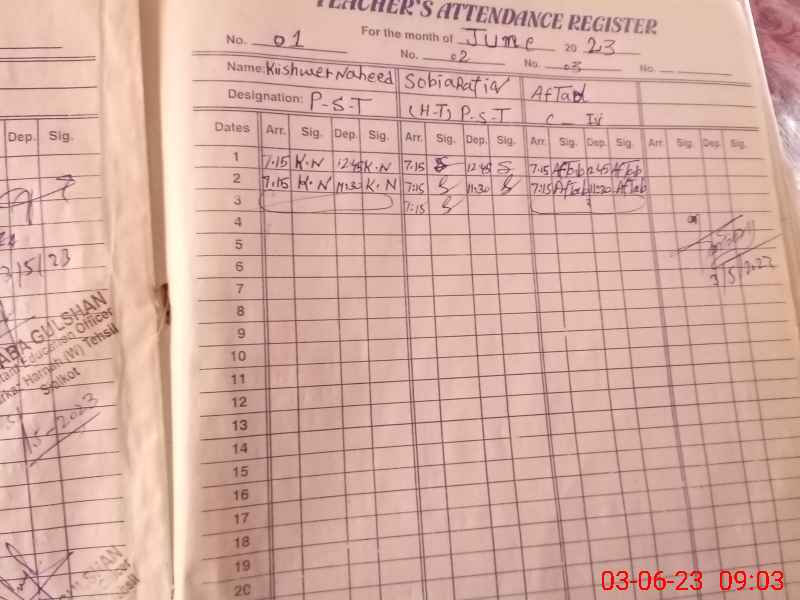 TEACHER'S ATTENDANCE REGISTER
No. 01 For the month of June 2023
No. 02 No. 03 No.
Name: Kishwer Naheed Sobia AfTab
Designation: P-S-T (H-T) P.S.T C_IV
Dates Arr. Sig. Dep. Sig. Arr. Sig. Dep. Sig. Arr. Sig. Dep. Sig. Arr. Sig. Dep. Sig.
1 7.15 K.N 12:45 K.N 7:15 S 12:45 S 7:15 AfTab 12:45 AfTab
2 7.15 K.N 11:30 K.N 7:15 S 11:30 S 7:15 AfTab 11:30 AfTab
3 7:15 S
4
5
6
7
8
9
10
11
12
13
14
15
16
17
18
19
20
3/5/2023
Dep. Sig.
3/5/23
ABA GULSHAN
Education Officer
(W) Tehsil
Sialkot
GULSHAN
03-06-23 09:03